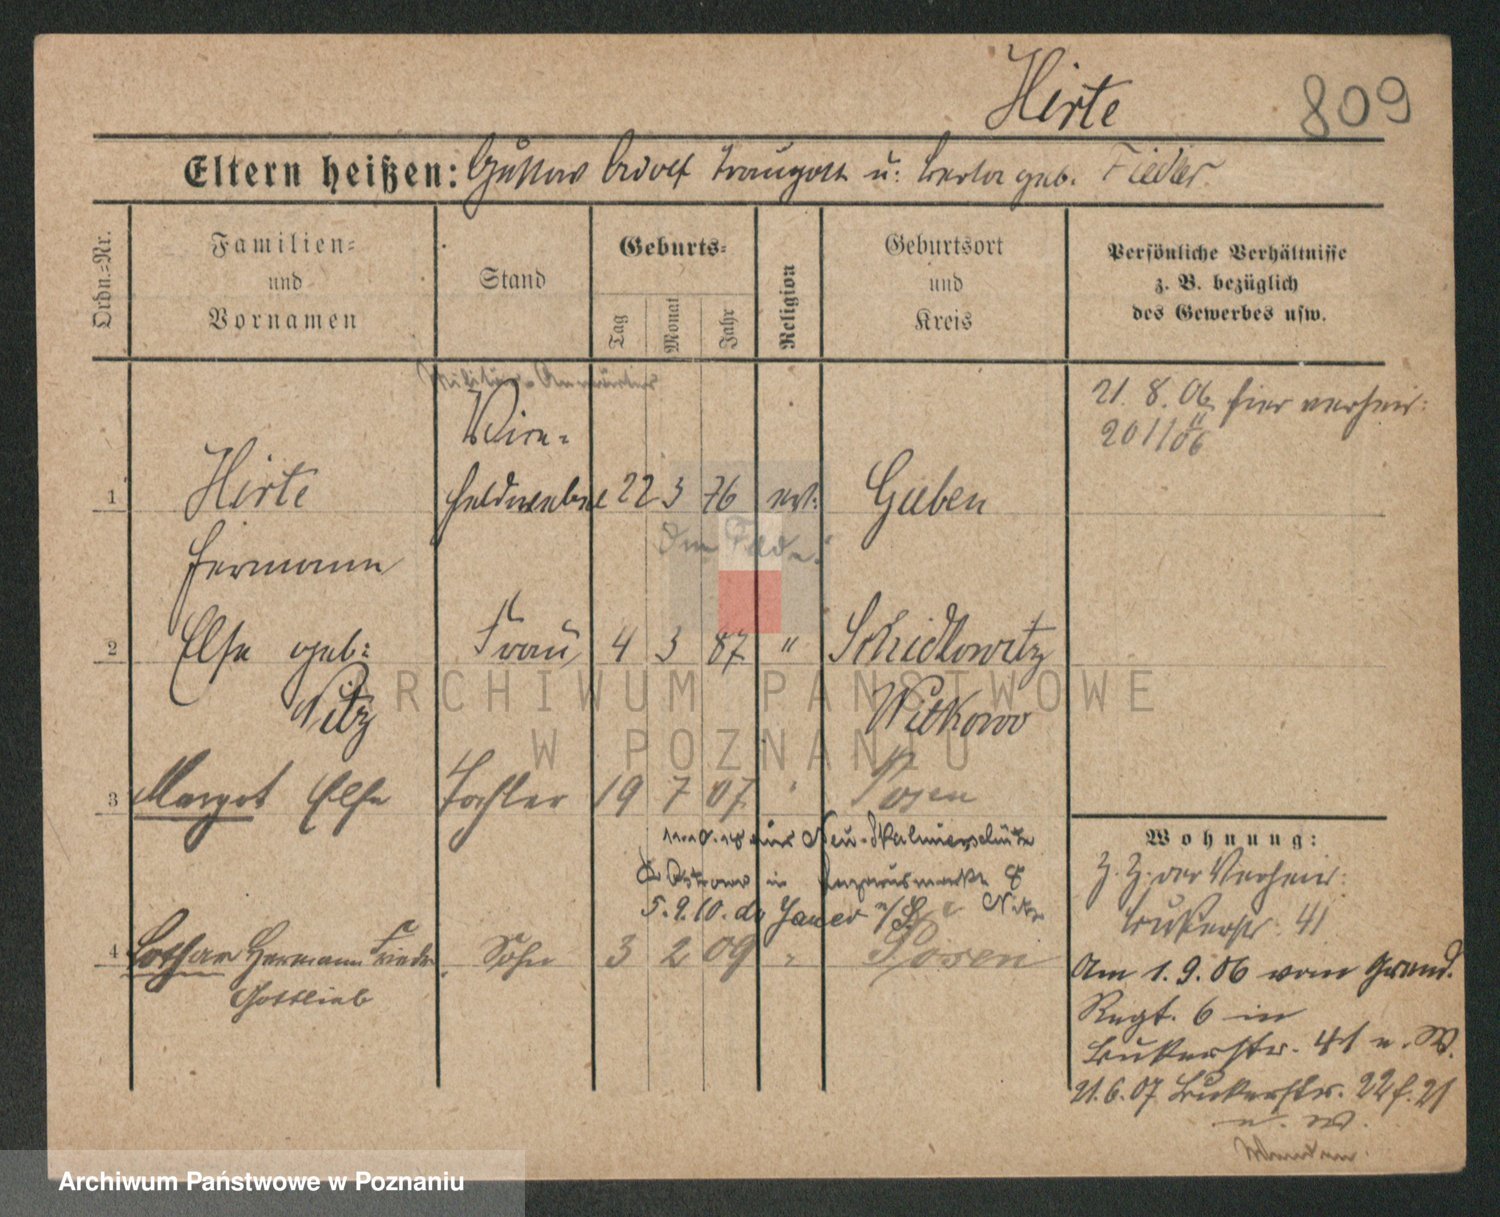 Hirte 809
Eltern heißen: Gustav Adolf Traugott u: Berta geb. Fiedler.
Ordn.=Nr.
Familien= und Vornamen
Stand
Geburts=
Tag Monat Jahr
Religion
Geburtsort und Kreis
Persönliche Verhältnisse
z. B. bezüglich
des Gewerbes usw.
Militär-Anwärter
Vize-
1 Hirte feldwebel 22 3 76 ev: Guben
Hermann
21. 8. 06 hier verheir:
20 11 06
2 Else geb: Frau 4 3 87 " Schidlowitz
Nitz Witkowo
3 Margot Else Tochter 19 7 07 " Posen
Neu-Skalmierschütz
5. 9. 10. Jauer
4 Lothar Hermann Sohn 3 2 09 " Posen
Gottlieb
Wohnung:
z. Z. der Verheir:
Bukerstr. 41
Am 1. 9. 06 vom Grend.
Regt. 6 in
Bukerstr. 41 n. W.
21. 6. 07 Bukerstr. 22 f. 21
n. W.
ARCHIWUM PAŃSTWOWE
W POZNANIU
Archiwum Państwowe w Poznaniu